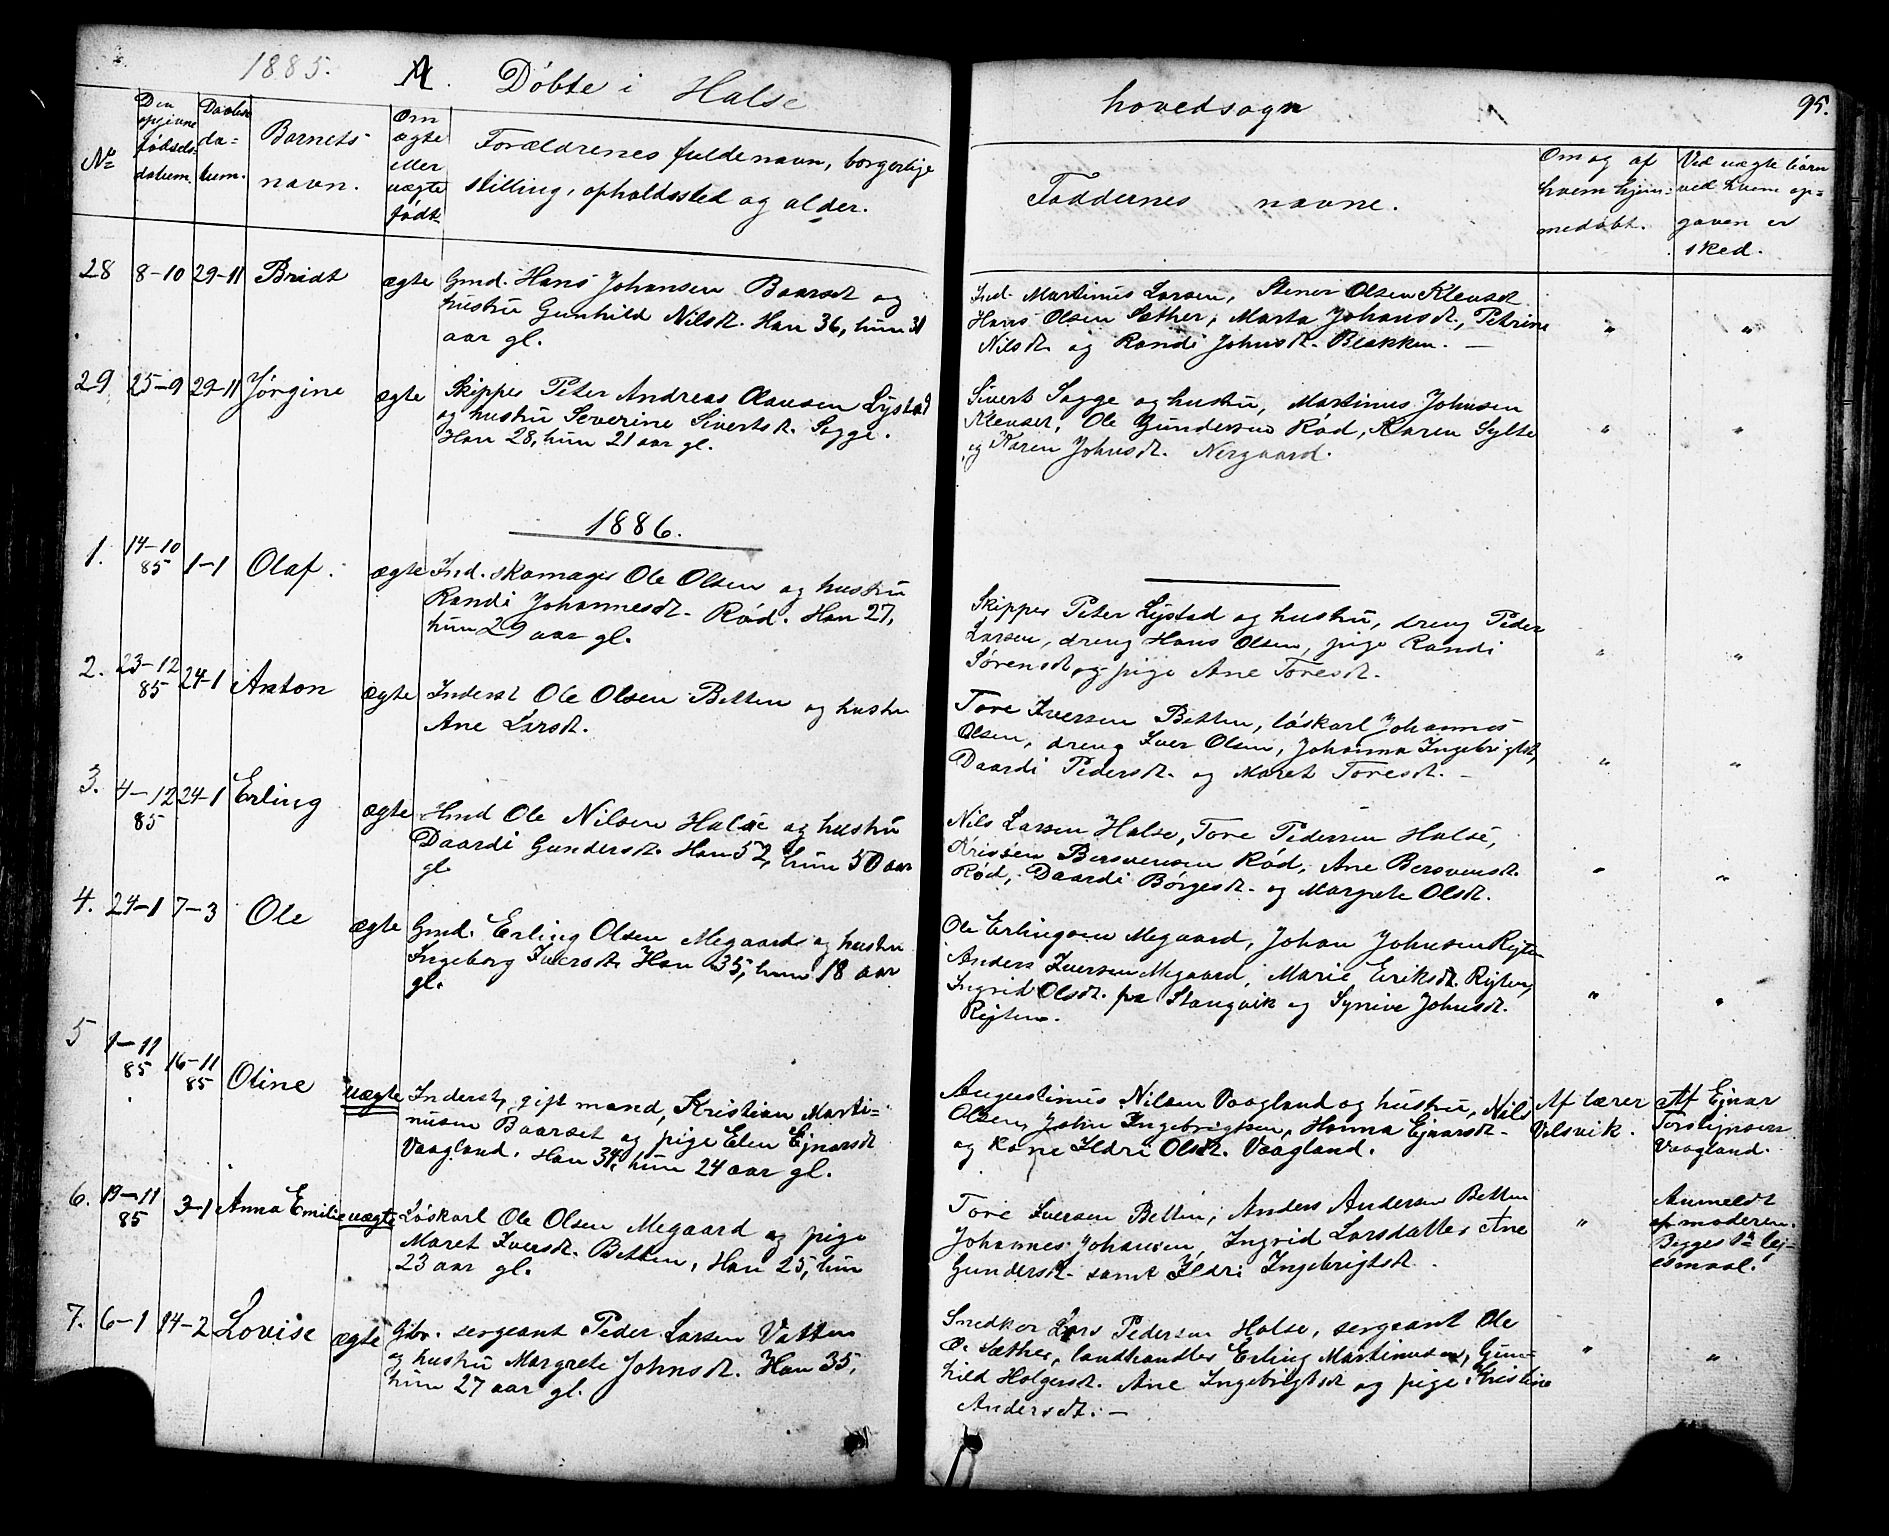 1885. A. Døbte i Halse hovedsogn 95.
No
Den opgivne fødsels-datum.
Daabs-da-tum.
Barnets navn.
Om ægte eller uægte født
Forældrenes fulde navn, borgerlige
stilling, opholdssted og alder.
Faddernes navne.
Om og af hvem hjem-medøbt.
Ved uægte børn ved hvem op-gaven er sked.
28 8-10 29-11 Bridt ægte Gmd. Hans Johansen Baarset og
hustru Gunhild Nilsdt. Han 36, hun 31
aar gl.
Ind. Martinus Larsen, Stener Olsen Klevset
Hans Olsen Sæther, Marta Johansdt., Petrine
Nilsdt. og Randi Johnsdt. Blekken. — " "
29 25-9 29-11 Jørgine ægte Skipper Peter Andreas Olausen Lystad
og hustru Severine Sivertsdt. Sogge.
Han 28, hun 21 aar gl.
Sivert Sogge og hustru, Martinus Johnsen
Klevset, Ole Gundersen Rød, Karen Sylte
og Karen Johnsdt. Nergaard. " "
1886.
1. 14-10 85 1-1 Olaf. ægte Ind. skomager Ole Olsen og hustru
Randi Johannesdt. Rød. Han 27,
hun 29 aar gl.
Skipper Peter Lystad og hustru, dreng Peder
Larsen, dreng Hans Olsen, pige Randi
Sørensdt og pige Ane Toresdt. " "
2. 23-12 85 24-1 Anton ægte Inderst Ole Olsen Betten og hustru
Ane Larsdt.
Tore Iversen Betten, løskarl Johannes
Olsen, dreng Iver Olsen, Johanna Ingebrigtsdt,
Daardi Pedersdt. og Maret Toresdt. — " "
3. 4-12 85 24-1 Erling ægte Gmd Ole Nilsen Halse og hustru
Daardi Gundersdt. Han 52, hun 50 aar
gl.
Nils Larsen Halse, Tore Pedersen Halse,
Bersvensen Rød, Ane Bersvensdt.
Rød, Daardi Børgesdt. og Margrete Olsdt. " "
4. 24-1 7-3 Ole ægte Gmd. Erling Olsen Megaard og hustru
Ingeborg Iversdt. Han 35, hun 18 aar
gl.
Ole Erlingsen Megaard, Johan Johnsen Rejten
Anders Iversen Megaard, Marie Eriksdt. Rejten,
Ingrid Olsdt. fra Stangvik og Synive Johnsdt.
Rejten. " "
5 1-11 85 16-11 85 Oline uægte Inderst, gift mand, Kristian Marti=
nusen Baarset og pige Elen Ejnarsdt
Vaagland. Han 34, hun 24 aar gl.
Augustinus Nilsen Vaagland og hustru, Nils
Olsen, John Ingebrigtsen, Hanna Ejnarsdt.
og kone Ildri Olsdt. Vaagland.
Af lærer
Vilsvik.
Af Ejnar
Torstejnsen
Vaagland.
6. 19-11 85 3-1 Anna Emilie uægte Løskarl Ole Olsen Megaard og pige
Maret Iversdt. Betten, Han 25, hun
23 aar gl.
Tore Iversen Betten, Anders Andersen Betten
Johannes Johansen, Ingrid Larsdatter Ane
Gundersdt. samt Ildri Ingebrigtsdt. "
Anmeldt
af moderen.
Begges 1ste lej=
ersmaal.
7. 6-1 14-2 Lovise ægte Gbr. sergeant Peder Larsen Vatten
og hustru Margrete Johnsdt. Han 35,
hun 27 aar gl.
Snedker Lars Pedersen Halse, sergeant Ole
O. Sæther, landhandler Erling Martinusen, Gun=
hild Holgersdt. Ane Ingebrigtsdt og pige Kristine
Andersdt. — " "